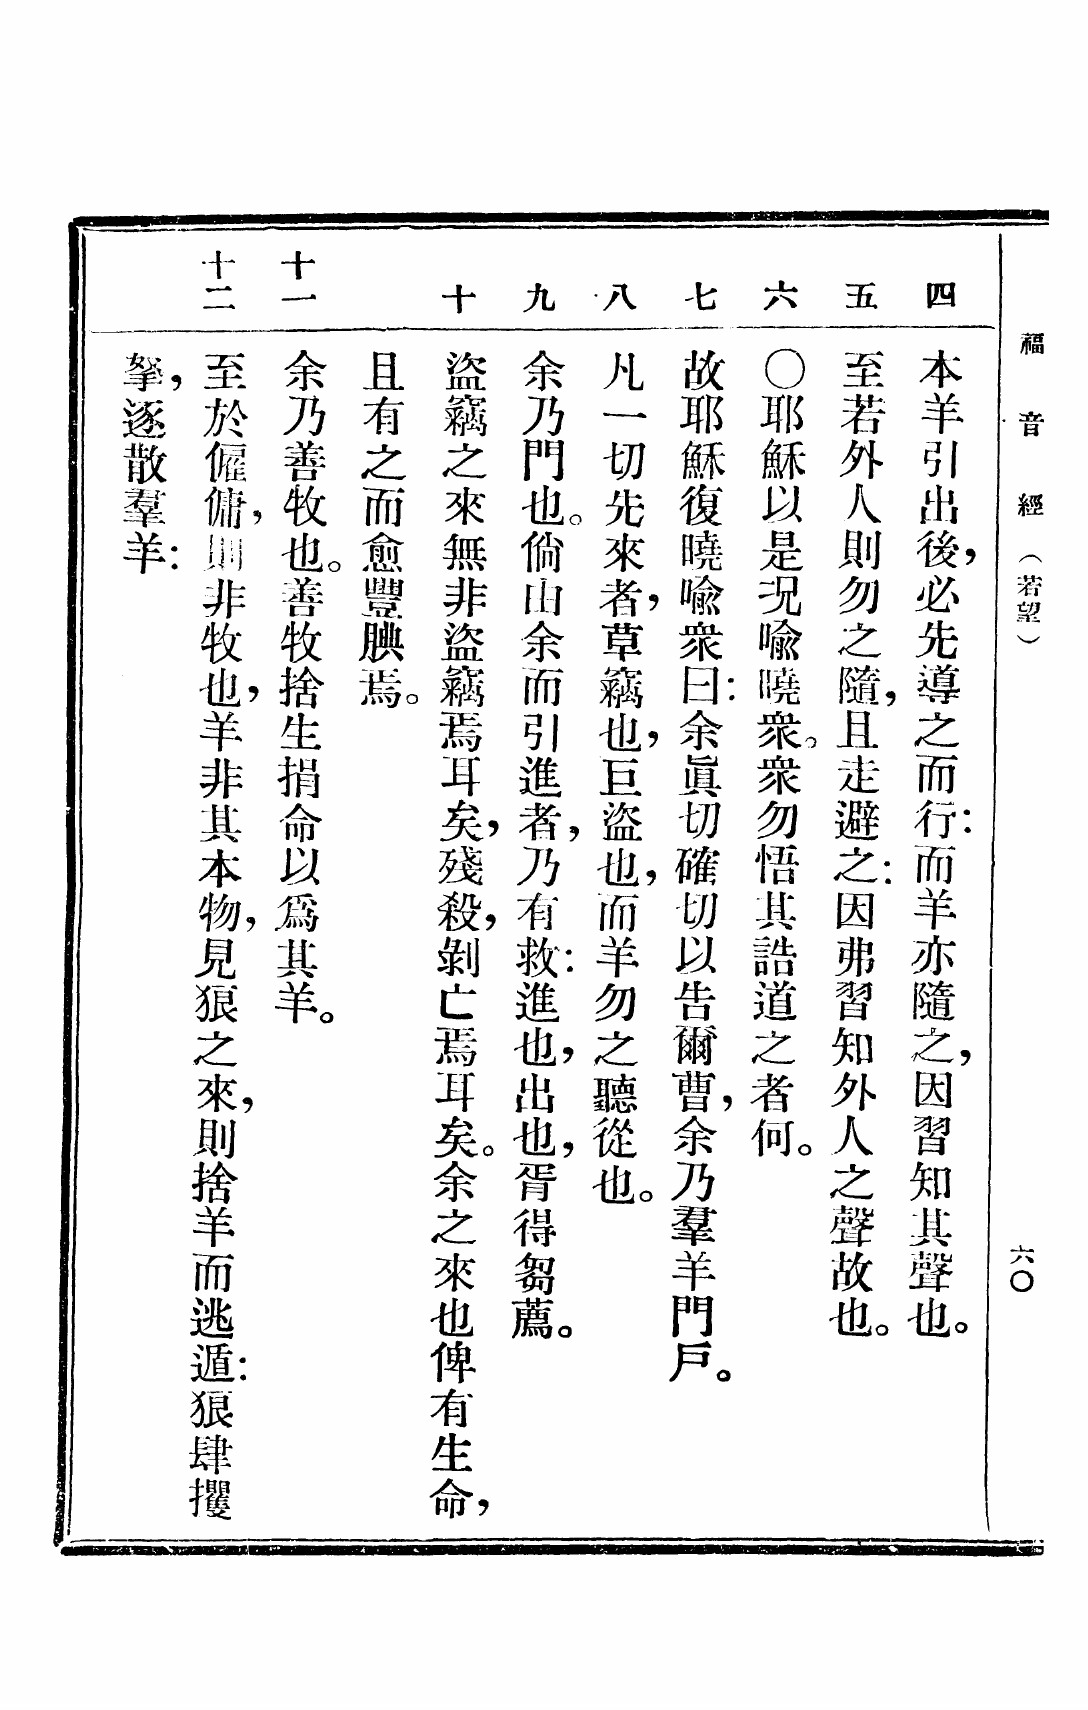 福音經（若望）
六〇
四
本羊引出後，必先導之而行：而羊亦隨之，因習知其聲也。
五
至若外人則勿之隨，且走避之：因弗習知外人之聲故也。
六
〇耶穌以是況喻曉衆。衆勿悟其誥道之者何。
七
故耶穌復曉喻衆曰：余眞切確切以告爾曹，余乃羣羊門戶。
八
凡一切先來者，草竊也，巨盜也，而羊勿之聽從也。
九
余乃門也。倘由余而引進者，乃有救：進也，出也，胥得芻薦。
十
盜竊之來無非盜竊焉耳矣，殘殺，剝亡焉耳矣。余之來也俾有生命，
且有之而愈豐腆焉。
十一
余乃善牧也。善牧捨生捐命以爲其羊。
十二
至於僱傭，則非牧也，羊非其本物，見狼之來，則捨羊而逃遁：狼肆攫
拏，逐散羣羊：